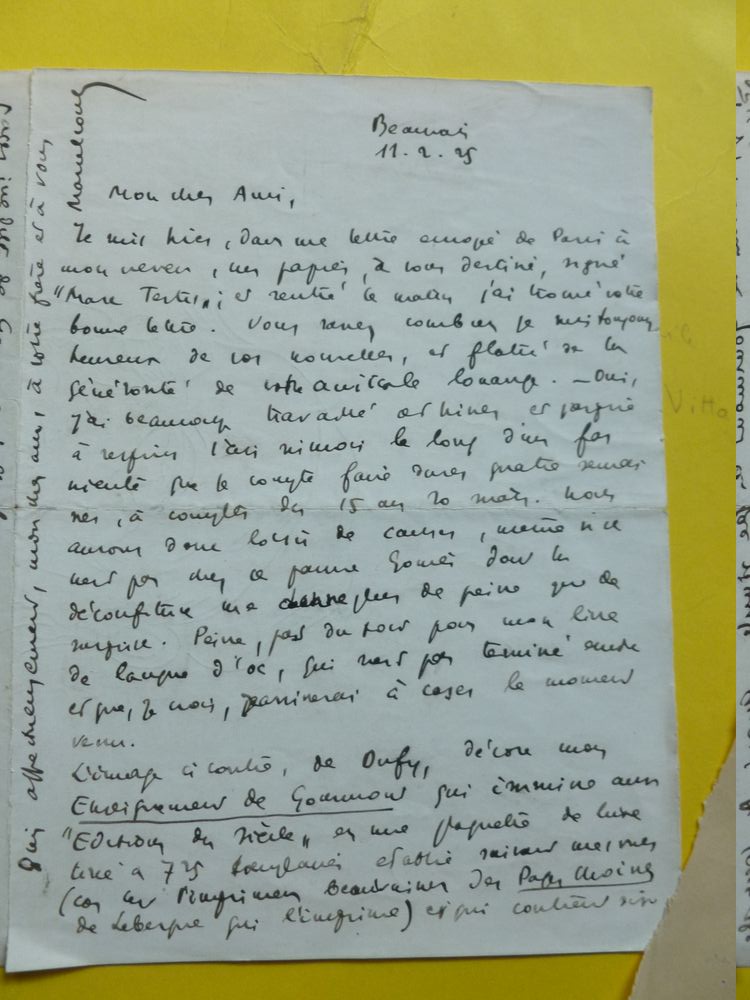 Beauvais
11. 2. 25
Mon cher Ami,
Je mis hier, dans une lettre envoyé de Paris à
mon neveu, un papier, à vous destiné, signé
"Marc Tertre" ; et rentré ce matin j'ai trouvé votre
bonne lettre. Vous savez combien je suis toujours
heureux de vos nouvelles, et flatté de la
générosité de votre amicale louange. — Oui,
j'ai beaucoup travaillé cet hiver et
à respirer l'air le long d'un far
niente que je compte faire durer quatre semai
nes, à compter du 15 au 20 mars. Nous
aurons donc loisir de causer, même si ce
n'est pas chez ce pauvre Gomès dont la
déconfiture me donne plus de peine que de
surprise. Peine, pas du tout pour mon livre
de langue d'oc, qui n'est pas terminé
et que, je crois, j'arriverai à caser le moment
venu.
L'image ci contre, de Dufy, décore mon
Enseignement de Gourmont qui aux
"Editions du Siècle" en une plaquette de luxe
tiré à 725 établie suivant mes vues
(car c'est l'imprimeur Beauvaisien des Pages Choisies
de Lebesgue qui l'imprime) et qui contient
Bien affectueusement, mon cher ami, à votre frère et à vous